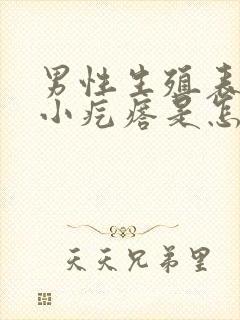 男性生殖表
小疙瘩是怎
天天兄弟里